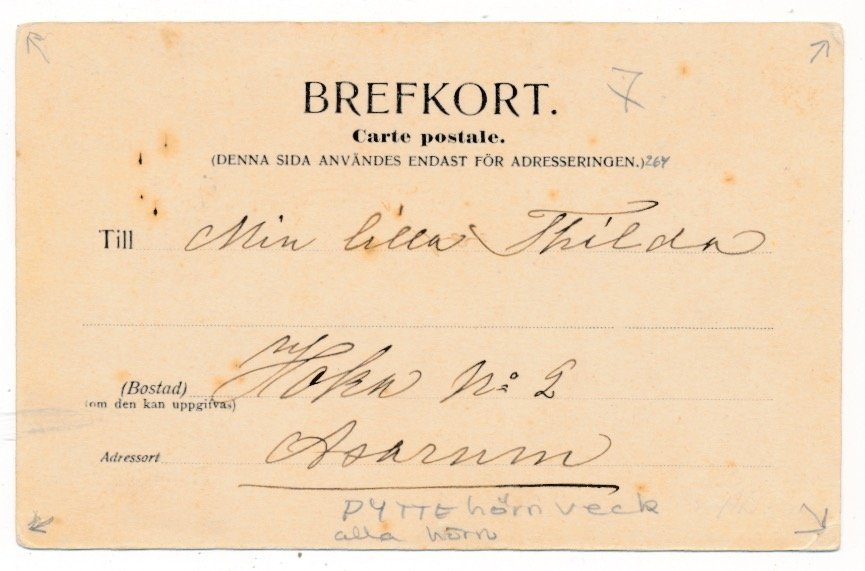 BREFKORT. 7
Carte postale.
(DENNA SIDA ANVÄNDES ENDAST FÖR ADRESSERINGEN.) 264
Till Min lilla Thilda
(Bostad) Hoka No 2
(om den kan uppgifvas)
Adressort Asarum
PYTTE hörn veck
alla hörn